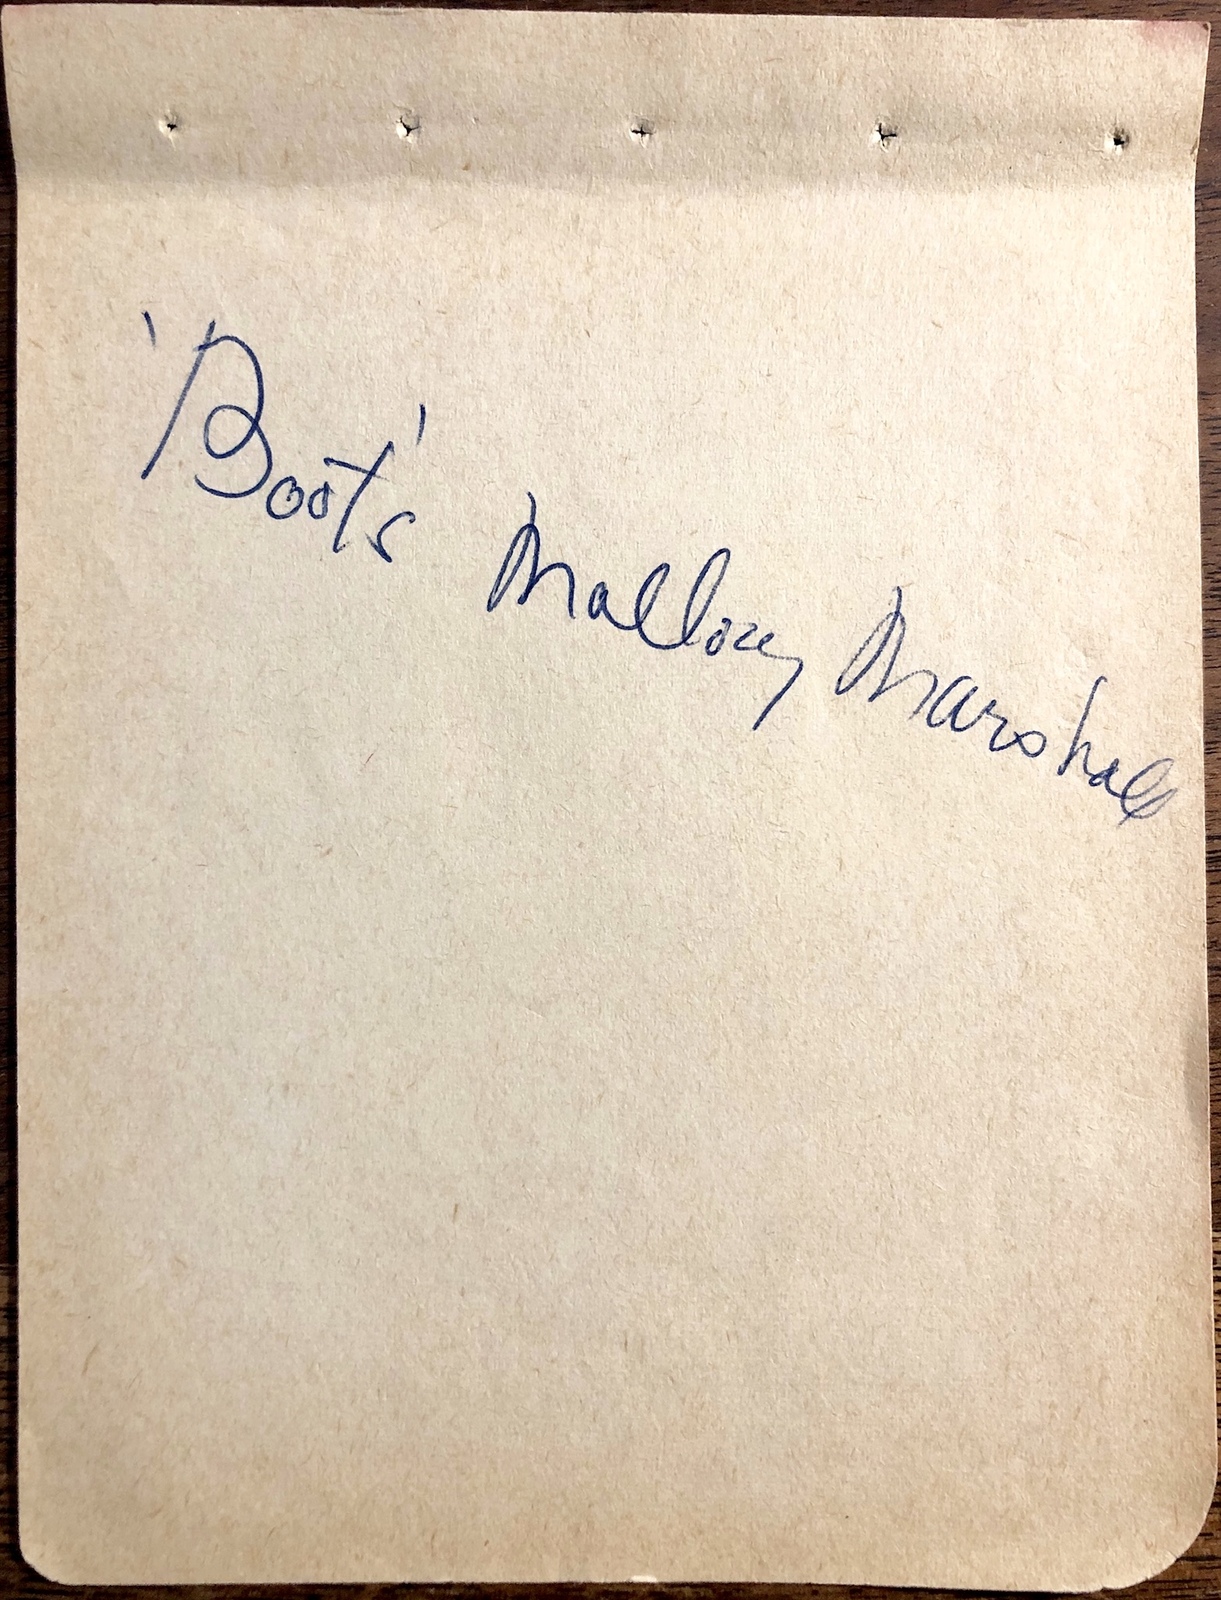 'Boots' Mallory Marshall